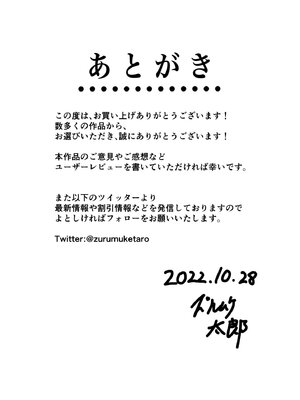 あとがき
この度は、お買い上げありがとうございます！
数多くの作品から、
お選びいただき、誠にありがとうございます！
本作品のご意見やご感想など
ユーザーレビューを書いていただければ幸いです。
また以下のツイッターより
最新情報や割引情報などを発信しておりますので
よとしければフォローをお願いいたします。
Twitter:@zurumuketaro
2022.10.28
ズルムケ
太郎